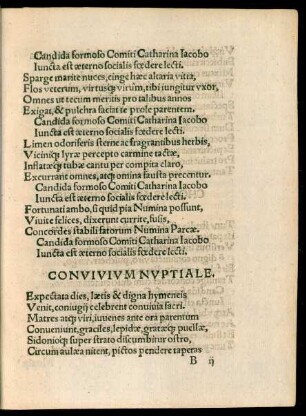 Candida formoso Comiti Catharina Iacobo
Iuncta est æterno socialis fœdere lecti.
Sparge marite nuces, cinge hæc altaria vitta,
Flos veterum, virtusq; virum, tibi iungitur vxor,
Omnes ut tecum meritis pro talibus annos
Exigat, & pulchra faciat te prole parentem.
Candida formoso Comiti Catharina Iacobo
Iuncta est æterno socialis fœdere lecti.
Limen odoriferis sterne ac fragrantibus herbis,
Vicinisq; lyræ percepto carmine tactæ,
Inflatæq; tubæ cantu per compita claro,
Excurrant omnes, atq; omina fausta precentur.
Candida formoso Comiti Catharina Iacobo
Iuncta est æterno socialis fœdere lecti.
Fortunati ambo, si quid pia Numina possunt,
Viuite felices, dixerunt currite, fusis,
Concordes stabili fatorum Numina Parcæ.
Candida formoso Comiti Catharina Iacobo
Iuncta est æterno socialis fœdere lecti.
CONVIVIVM NVPTIALE.
Expectata dies, lætis & digna hymeneis
Venit, coniugij celebrent conuiuia sacri.
Matres atq; viri, iuuenes ante ora parentum
Conueniunt, graciles, lepidæ, gratæq; puellæ,
Sidonioq; super strato discumbitur ostro,
Circum aulæa nitent, pictos pendere taperas
B ij